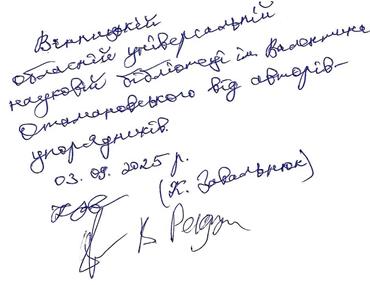 Вінницькій
обласній універсальній
науковій бібліотеці ім. Валентина
Отамановського від авторів-
упорядників.
03. 09. 2025 р.
(К. Завальнюк)